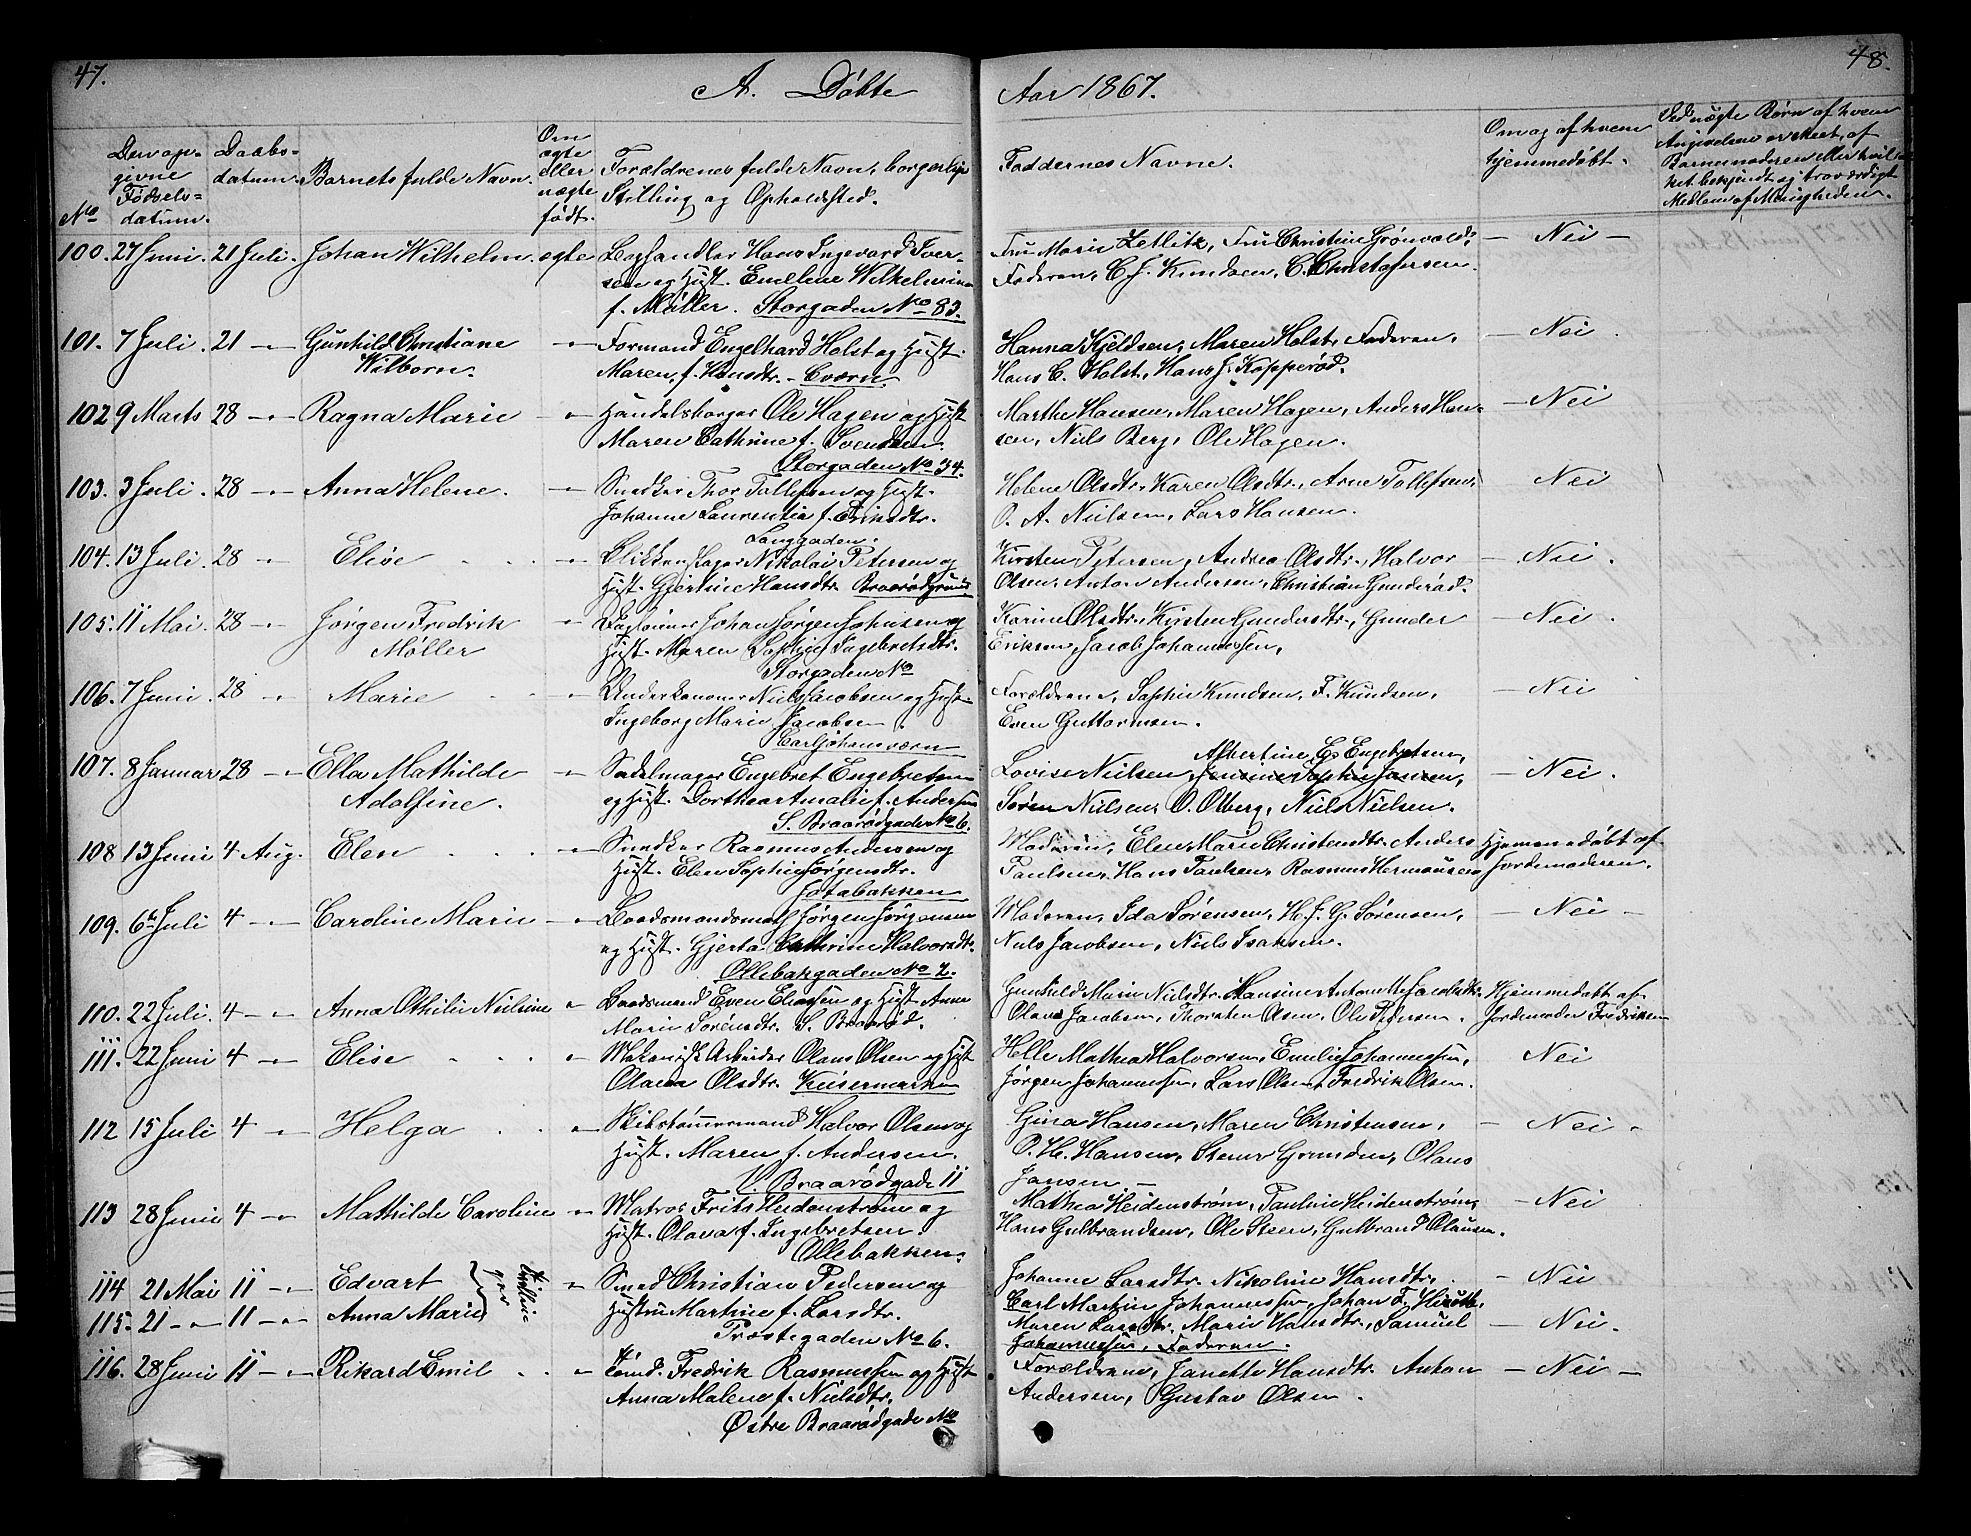 47.
A. Døbte
Aar 1867.
48.
No
Den opgivne Fødselsdatum.
Daabsdatum.
Barnets fulde Navn.
Om ægte eller uægte født.
Forældrenes fulde Navn, borgerlige
Stilling og Opholdssted.
Faddernes Navne.
Om og af hvem
hjemmedøbt.
Ved uægte Børn af hvem
Angivelsen er skeet, af
Barnemoderen eller hvil-
ket bekjendt og troværdigt
Medlem af Menigheden.
100. 27 Juni. 21 Juli. Johan Wilhelm. ægte Boghandler Hans Ingevard Iver-
sen og Hust. Emilene Wilhelmine
f. Møller. Storgaden No 83.
Fru Marie Zetlitz, Fru Christine Grønvold, — Nei —
Faderen, C. J. Knudsen, C. Christofersen.
101. 7 Juli. 21 -"- Gunhild Christiane -"- Formand Engelhard Holst og Hust.
Wilborn. Maren, f. Hansdtr. - Cværn.
Hanna Kjeldsen, Maren Holst, Faderen, — Nei.
Hans C. Holst, Hans J. Kopperød.
102 9 Marts 28 -"- Ragna Marie -"- Handelsborger Ole Hagen og Hust
Maren Cathrine f. Svendsen.
Storgaden No 34.
Marthe Hansen, Maren Hagen, Anders Han- — Nei
sen, Niels Berg, Ole Hagen.
103. 3 Juli. 28 -"- Anna Helene. -"- Snedker Thor Tollefsen og Hust.
Johanne Laurentia f. Eriksdtr.
Langgaden.
Helene Olsdtr. Karen Olsdtr., Arne Tollefsen, — Nei
O. A. Nielsen, Lars Hansen.
104. 13 Juli. 28 -"- Elise -"- Blikkenslager Nikolai Petersen og
Hust. Gjertine Hansdtr. Braarødgrund
Kirsten Petersen, Andrea Olsdtr., Halvor — Nei.
Olsen, Anton Andersen, Christian Gunderød.
105. 11 Mai. 28 -"- Jørgen Fredrik -"- Dagløner Johan Jørgen Johnsen og
Møller Hust. Maren Sophie Ingebretsdtr.
Storgaden No
Karine Olsdtr. Kirsten Gundersdtr., Gunder — Nei.
Eriksen, Jacob Johannessen,
106. 7 Juni. 28 -"- Marie -"- Underkanoner Niels Jacobsen og Hust.
Ingeborg Marie Jacobsen
Carljohansværn
Forældrene, Sophie Knudsen, F. Knudsen, — Nei
Even Guttormsen.
107. 8 Januar 28 -"- Ella Mathilde -"- Sadelmager Engebret Engebretsen
Adolfine. og Hust. Dorthea Amalie f. Andersen
S. Braarødgade No 6.
Albertine E. Engebretsen,
Lovise Nielsen, Jensine Sophie Jansen, — Nei.
Søren Nielsen, O. Olberg, Niels Nielsen.
108 13 Juni 4 Aug. Elen -"- Snedker Rasmus Andersen og
Hust. Elen Sophie Jørgensdtr.
Fotabakken
Moderen, Elen Marie Christensdtr. Anders Hjemmedøbt af
Paulsen, Hans Paulsen, Rasmus Hermansen Jordemoderen.
109. 6te Juli 4 -"- Caroline Marie -"- Baadsmandsmath Jørgen Jørgensen
og Hust. Gjerta Cathrine Halvorsdtr.
Ollebakgaden No 2.
Moderen, Ida Sørensen, H. J. G. Sørensen, — Nei —
Niels Jacobsen, Niels Isaksen.
110. 22 Juli. 4 -"- Anna Othilie Nielsine -"- Baadsmand Even Eliassen og Hust. Anne
Marie Sørensdtr. S. Braarød.
Gunhild Marie Nielsdtr. Hansine Antonette Jacobsdtr. Hjemmedøbt af
Olava Jacobsen, Thorsten Olsen, Ole Pedersen. Jordemoder Fredriksen
111. 22 Juni 4 -"- Elise -"- Mekanisk Arbeider Olaus Olsen og Hust
Olava Olsdtr. Keisermarken
Helle Mathea Halvorsen, Emilie Johannessen, Nei
Jørgen Johannessen, Lars Olsen, Fredrik Olsen.
112 15 Juli 4 -"- Helga -"- Skibstømmermand Halvor Olsen og
Hust. Maren f. Andersen.
V. Braarødgade 11
Gina Hansen, Maren Christensen, — Nei -
O. H. Hansen, Steen Grunden, Olaus
Jansen. —
113 28 Juni 4 -"- Mathilde Caroline -"- Matros Frits Heidenstrøm og
Hust. Olava f. Ingebretsen.
Ollebakken.
Mathea Heidenstrøm, Pauline Heidenstrøm, — Nei
Hans Gulbrandsen, Ole Steen, Gulbrand Olausen.
114 21 Mai 11 -"- Edvart Tvillinger -"- Smed Christian Pedersen og
115. 21 -"- 11 -"- Anna Marie Hustru Martine f. Larsdtr.
Præstegaden No 6.
Johanne Larsdtr. Nikoline Hansdtr. - Nei
Carl Martin Johannessen, Johan F.
Maren Larsdtr. Marie Hansdtr., Samuel — Nei.
Johannessen, Faderen.
116. 28 Juni 11 -"- Rikard Emil -"- Tømd. Fredrik Rasmussen og Hust
Anna Malene f. Nielsdtr.
Østre Braarødgade No
Forældrene, Janette Hansdtr. Anton — Nei —
Andersen, Gustav Olsen.